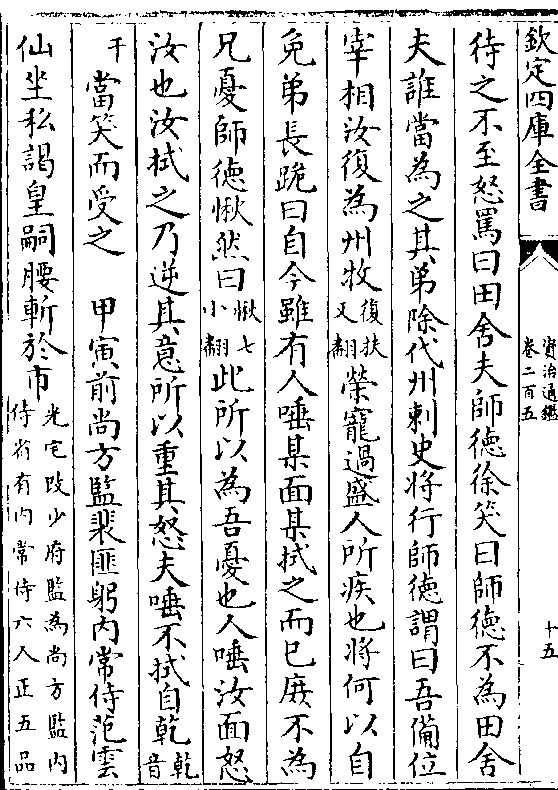 欽定四庫全書
資治通鑑
卷二百五
十五
待之不至怒罵曰田舍夫師德徐笑曰師德不為田舍
夫誰當為之其弟除代州刺史將行師德謂曰吾備位
宰相汝復為州牧復扶又翻榮寵過盛人所疾也將何以自
免弟長跪曰自今雖有人唾某面某拭之而已庶不為
兄憂師徳愀然曰愀七小翻此所以為吾憂也人唾汝面怒
汝也汝拭之乃逆其意所以重其怒夫唾不拭自乾乾音
干當笑而受之 甲寅前尚方監裴匪躬内常侍范雲
仙坐私謁皇嗣腰斬於市光宅改少府監為尚方監内侍省有内常侍六人正五品